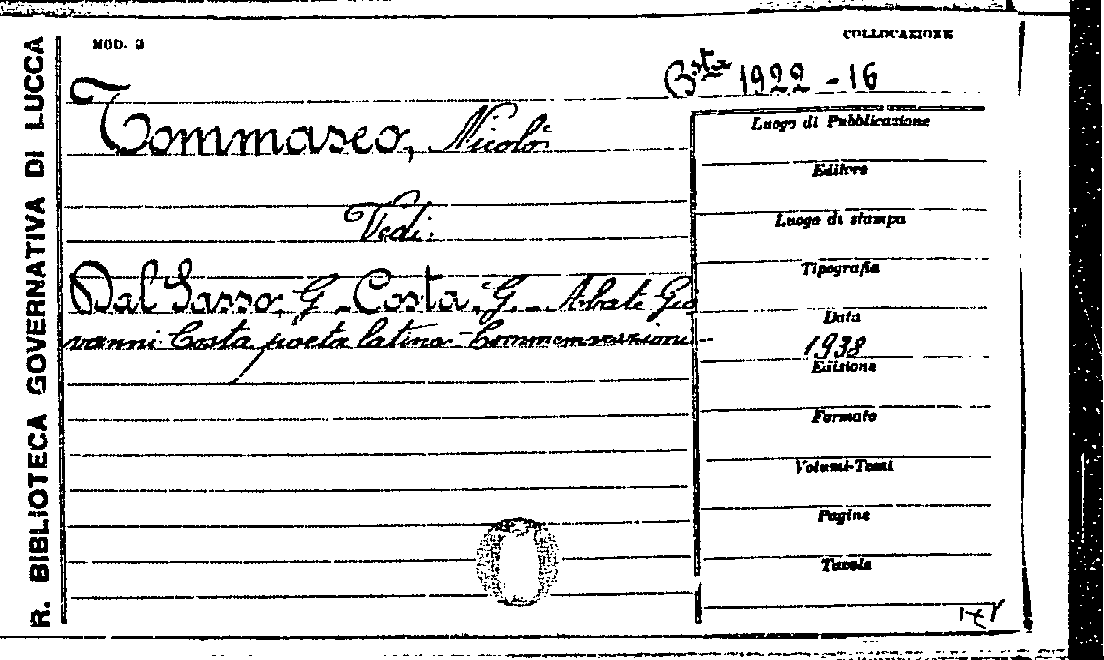 R. BIBLIOTECA GOVERNATIVA DI LUCCA
MOD. 3
COLLOCAZIONE
Bsta 1922 - 16
Tommaseo, Nicolò
Vedi:
Dal Sasso, G. - Costa, G. - Abate Gio
vanni Costa poeta latino - Commemorazioni -
Luogo di Pubblicazione
Editore
Luogo di stampa
Tipografia
Data
1938
Edizione
Formato
Volumi-Tomi
Pagine
Tavole